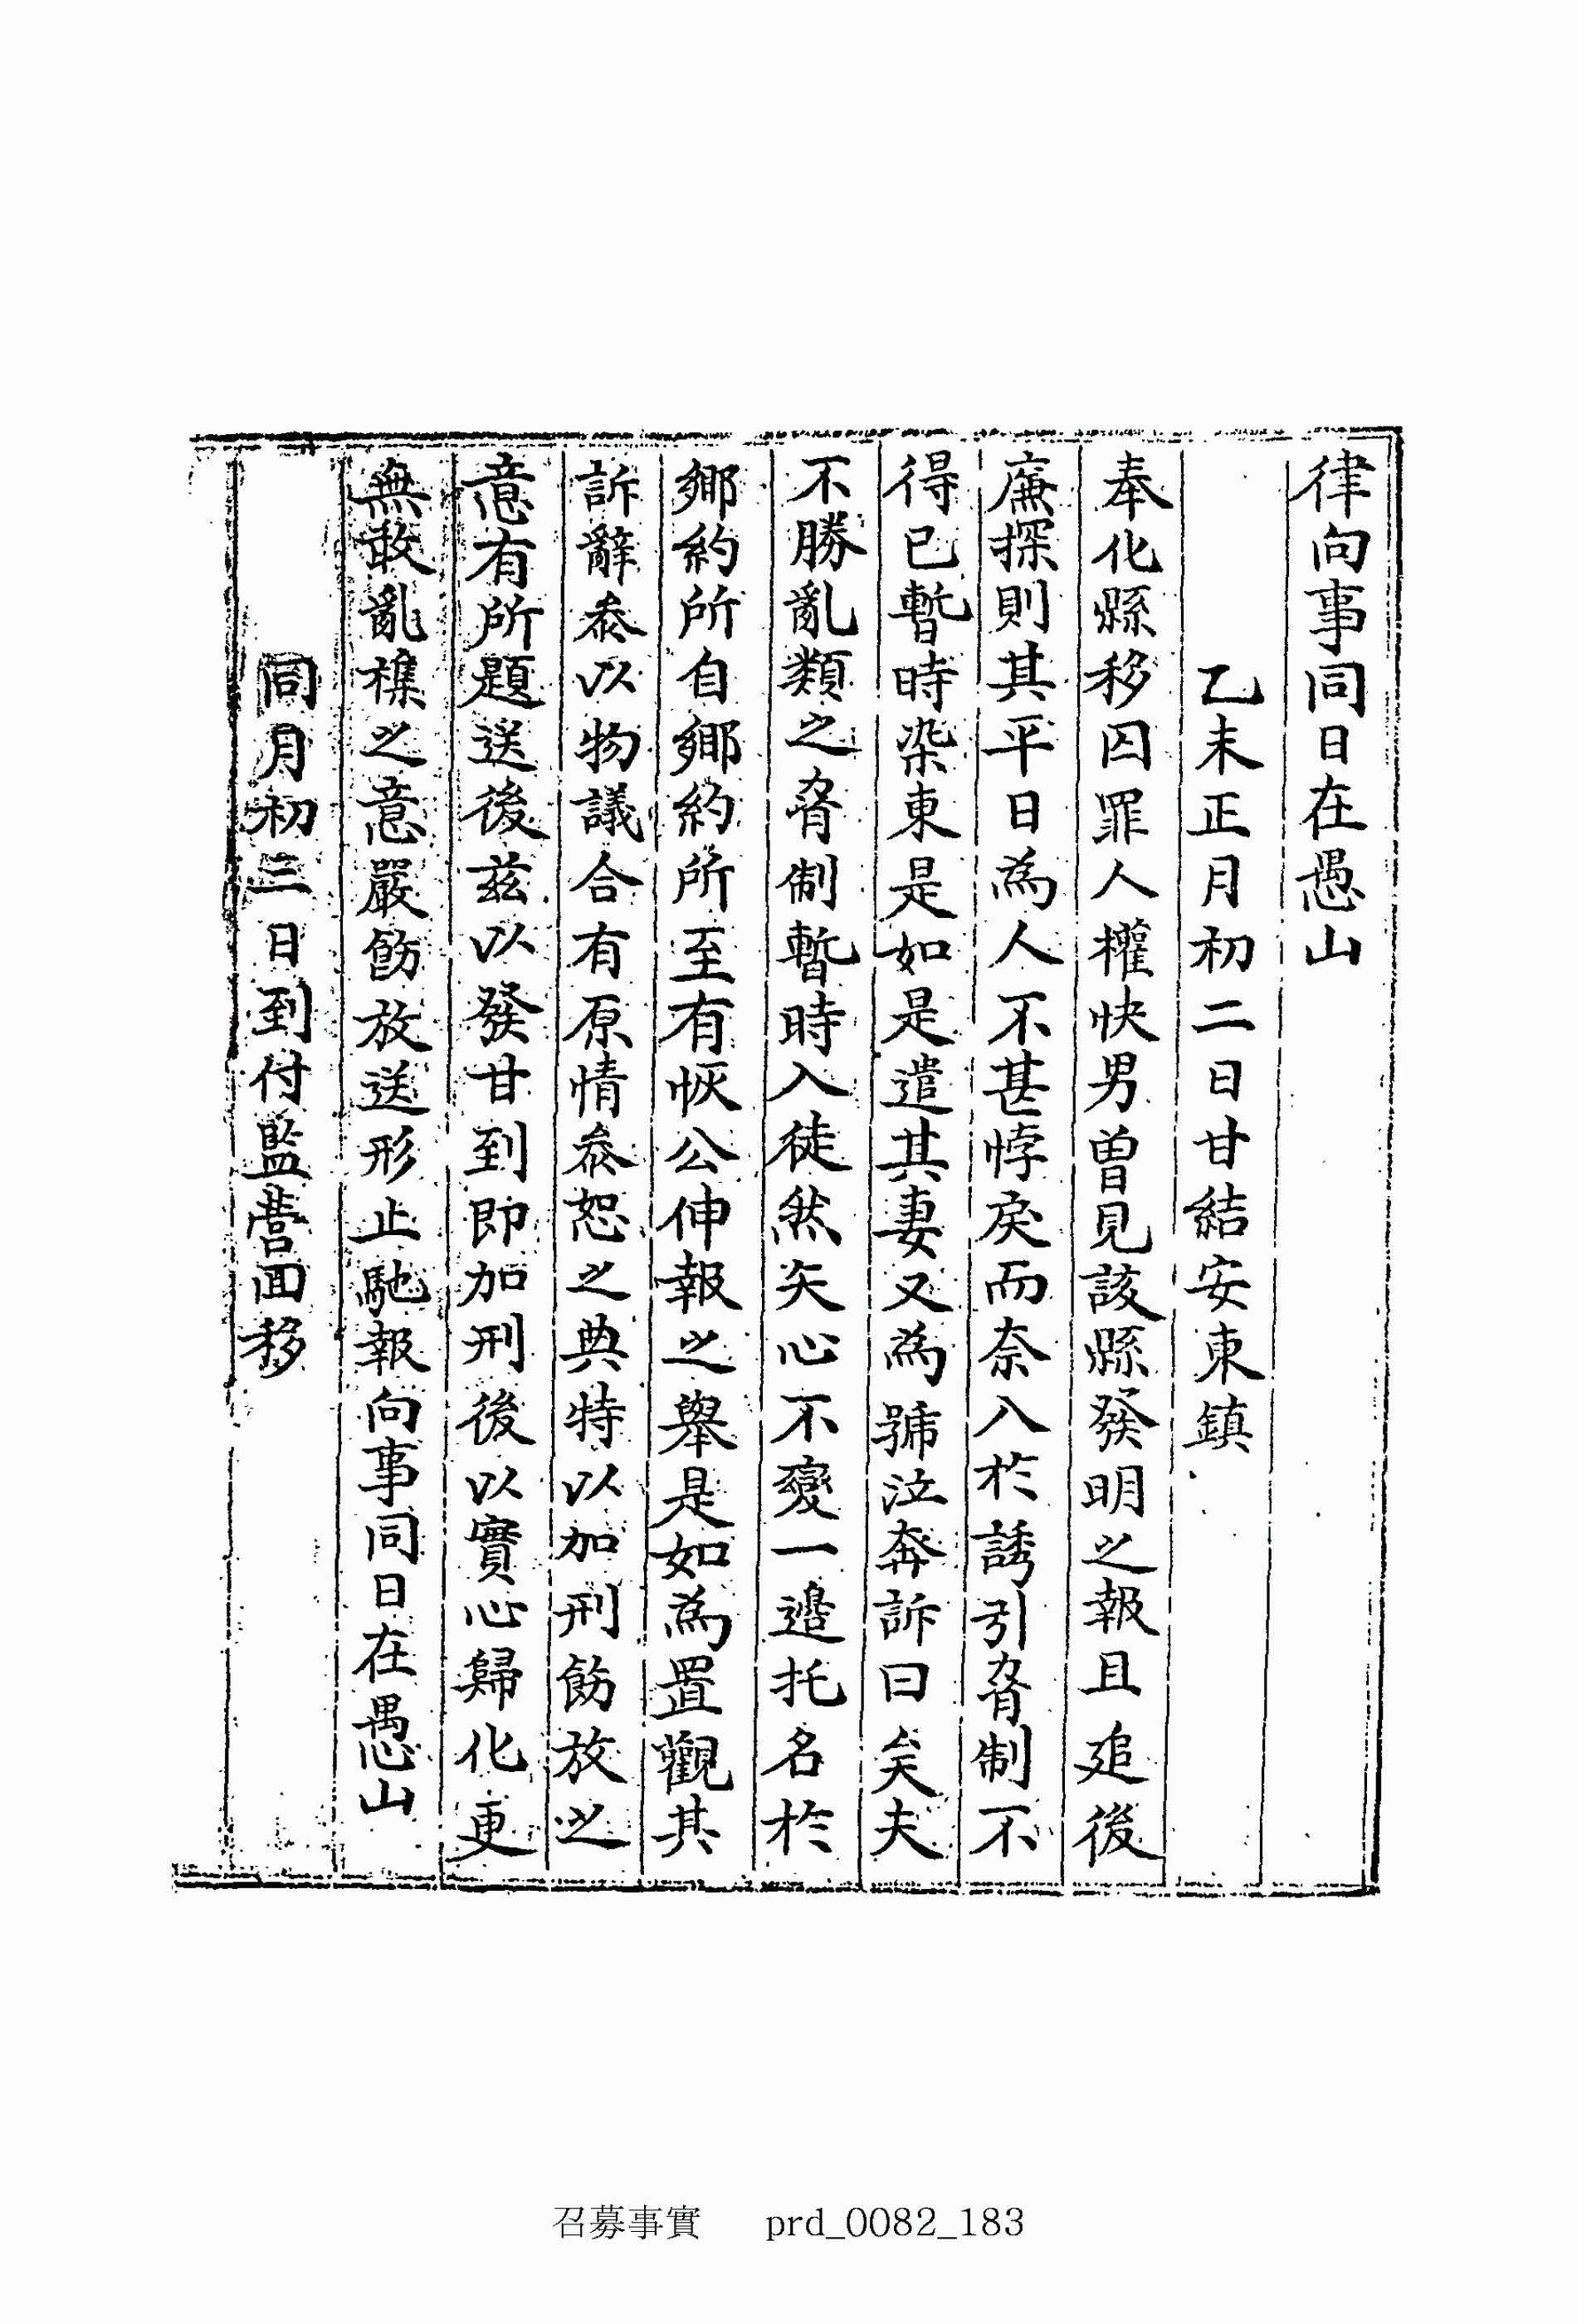 律向事同日在愚山
乙未正月初二日甘結安東鎭
奉化縣移囚罪人權快男曾見該縣發明之報且追後
廉探則其平日爲人不甚悖戾而奈入於誘引脅制不
得已暫時染東是如是遣其妻又爲號泣奔訴曰矣夫
不勝亂類之脅制暫時入徒然矢心不變一邊托名於
鄕約所自鄕約所至有恢公伸報之擧是如爲置觀其
訴辭叅以物議合有原情叅恕之典特以加刑飭放之
意有所題送後茲以發甘到卽加刑後以實心歸化更
無敢亂樣之意嚴飭放送形止馳報向事同日在愚山
同月初三日到付監營回移
召募事實 prd_0082_183